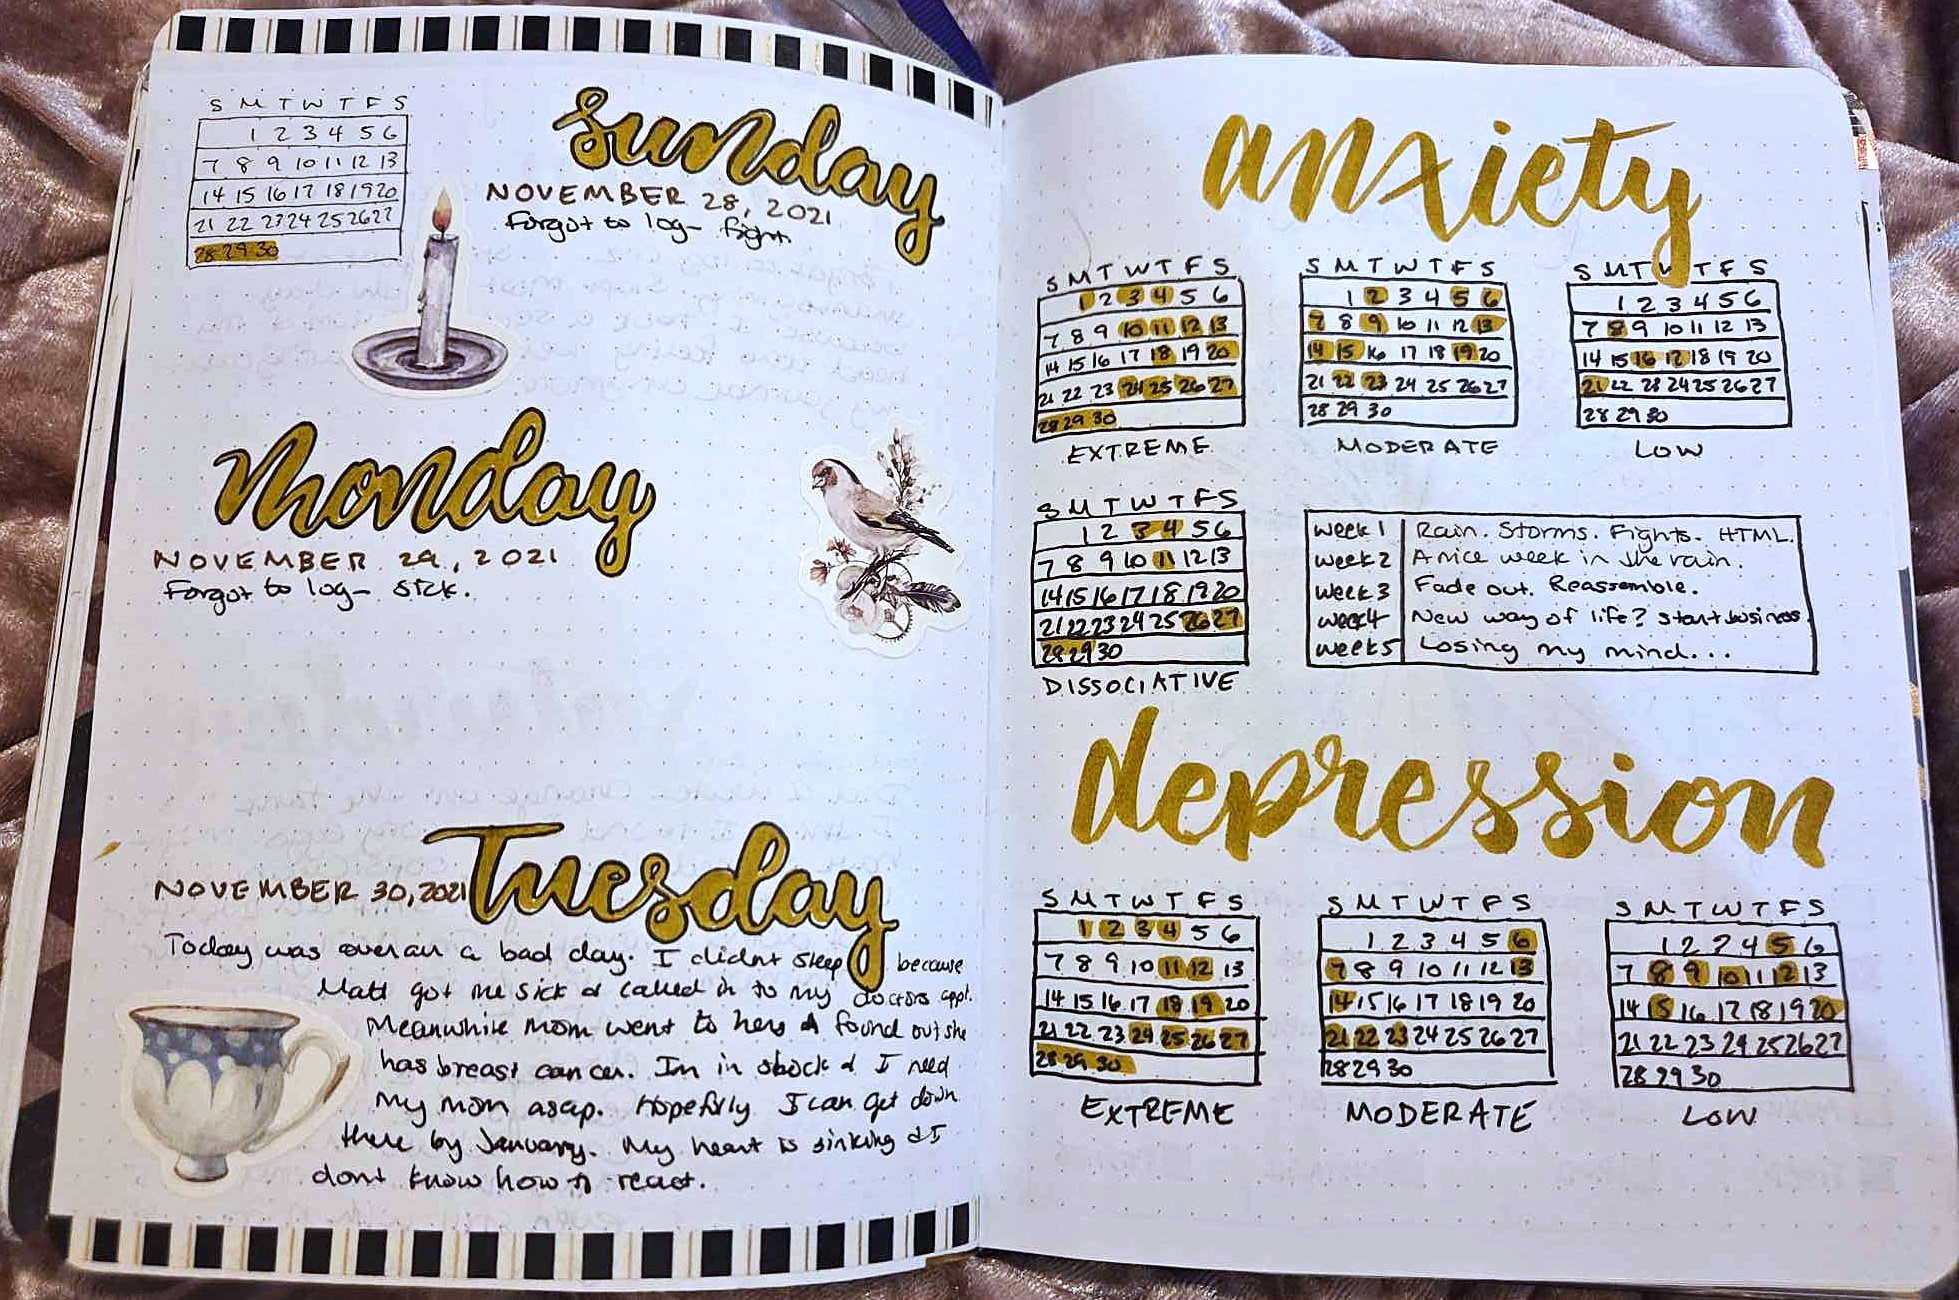 S M T W T F S
1 2 3 4 5 6
7 8 9 10 11 12 13
14 15 16 17 18 19 20
21 22 23 24 25 26 27
28 29 30
Sunday
NOVEMBER 28, 2021
Forgot to log- fight
Monday
NOVEMBER 29, 2021
Forgot to log- sick.
Tuesday
NOVEMBER 30, 2021
Today was overall a bad day. I didnt sleep because
Matt got me sick & called in to my doctors appt.
Meanwhile mom went to hers & found out she
has breast cancer. Im in shock & I need
my mom asap. Hopefully I can get down
there by January. My heart is sinking & I
dont know how to react.
anxiety
S M T W T F S
1 2 3 4 5 6
7 8 9 10 11 12 13
14 15 16 17 18 19 20
21 22 23 24 25 26 27
28 29 30
EXTREME
S M T W T F S
1 2 3 4 5 6
7 8 9 10 11 12 13
14 15 16 17 18 19 20
21 22 23 24 25 26 27
28 29 30
MODERATE
S M T W T F S
1 2 3 4 5 6
7 8 9 10 11 12 13
14 15 16 17 18 19 20
21 22 23 24 25 26 27
28 29 30
LOW
S M T W T F S
1 2 3 4 5 6
7 8 9 10 11 12 13
14 15 16 17 18 19 20
21 22 23 24 25 26 27
28 29 30
DISSOCIATIVE
week 1 Rain. Storms. Fights. HTML.
week 2 A nice week in the rain.
week 3 Fade out. Reassemble.
week 4 New way of life? start business.
week 5 Losing my mind...
depression
S M T W T F S
1 2 3 4 5 6
7 8 9 10 11 12 13
14 15 16 17 18 19 20
21 22 23 24 25 26 27
28 29 30
EXTREME
S M T W T F S
1 2 3 4 5 6
7 8 9 10 11 12 13
14 15 16 17 18 19 20
21 22 23 24 25 26 27
28 29 30
MODERATE
S M T W T F S
1 2 3 4 5 6
7 8 9 10 11 12 13
14 15 16 17 18 19 20
21 22 23 24 25 26 27
28 29 30
LOW